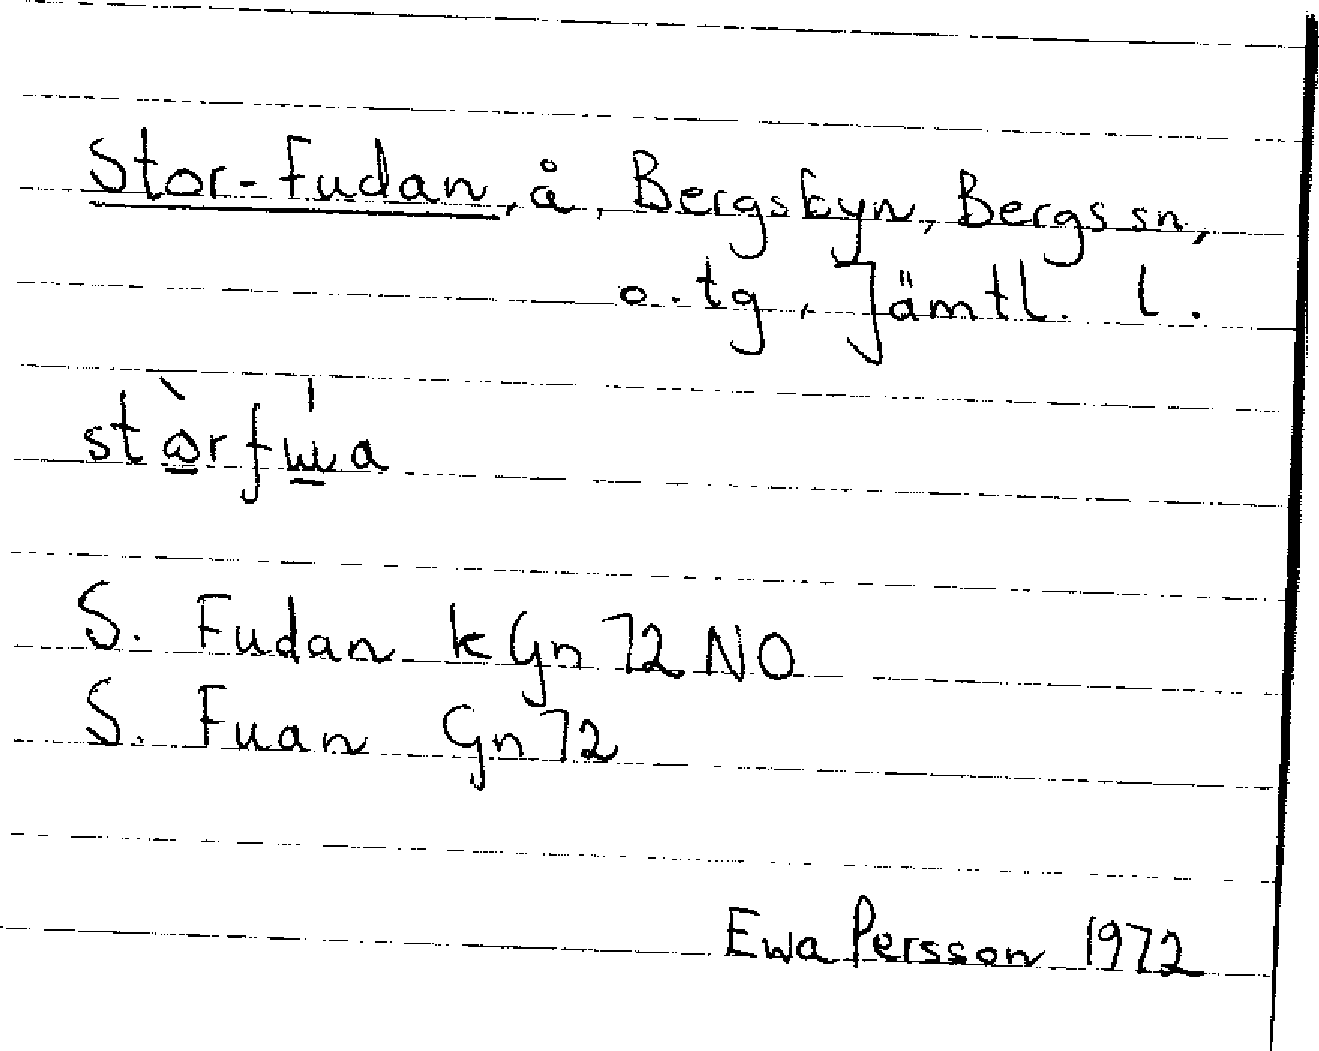 Stor-Fudan, å, Bergsbyn, Bergs sn,
o. tg, Jämtl. l.
S. Fudan kGn 72 NO
S. Fuan Gn 72
Ewa Persson 1972